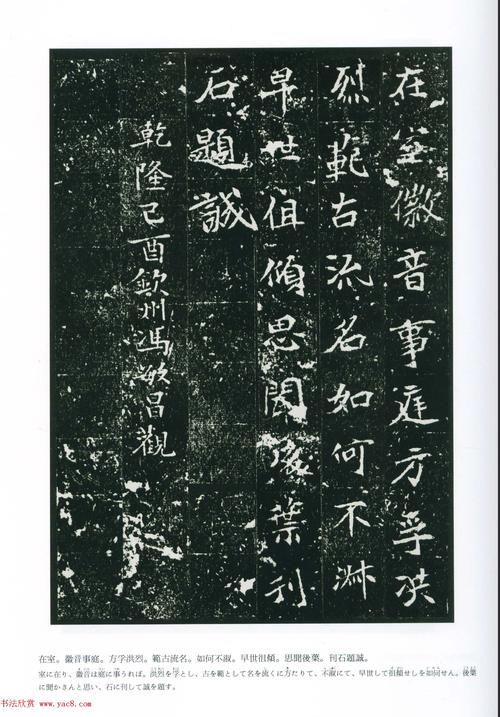 在室徽音事庭方孚洪
烈範古流名如何不淑
早世徂傾思聞後葉刊
石題誠
乾隆己酉欽州馮敏昌觀
在室。徽音事庭。方孚洪烈。範古流名。如何不淑。早世徂傾。思聞後葉。刊石題誠。
室に在り、徽音は庭に事うれば。洪烈を孚とし、古を範として名を流くに方たりて、不淑にて、早世して徂傾せしを如何せん。後葉
に聞かさんと思い、石に刊して誠を題す。
书法欣赏 www.yac8.com